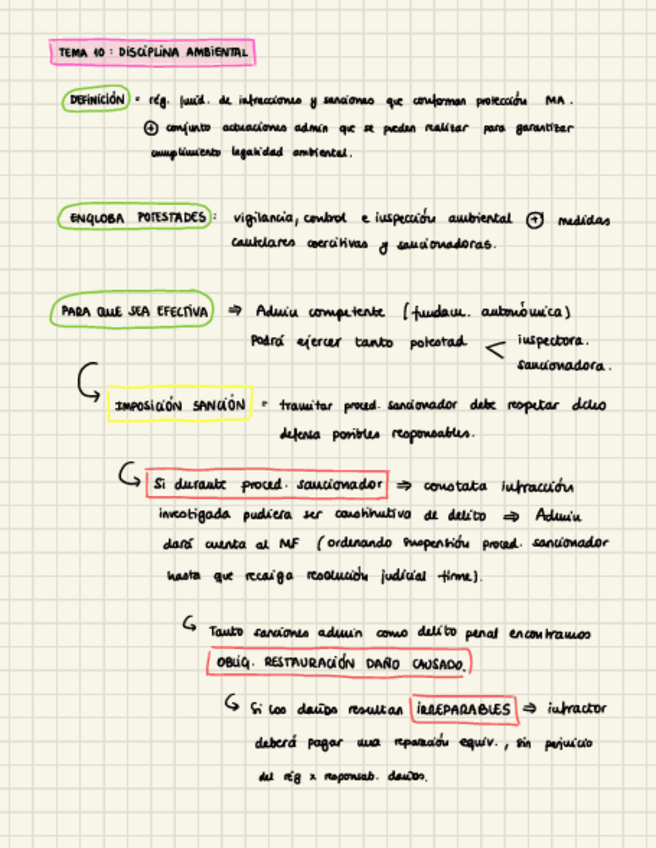 TEMA 10: DISCIPLINA AMBIENTAL
DEFINICIÓN = rég. juríd. de infracciones y sanciones que conforman protección MA.
⊕ conjunto actuaciones admin que se pueden realizar para garantizar
cumplimiento legalidad ambiental.
ENGLOBA POTESTADES: vigilancia, control e inspección ambiental ⊕ medidas
cautelares coercitivas y sancionadoras.
PARA QUE SEA EFECTIVA ⇒ Admin competente (fundam. autonómica)
Podrá ejercer tanto potestad < inspectora.
sancionadora.
IMPOSICIÓN SANCIÓN = tramitar proced. sancionador debe respetar dcho
defensa posibles responsables.
Si durante proced. sancionador ⇒ constata infracción
investigada pudiera ser constitutivo de delito ⇒ Admin
dará cuenta al MF (ordenando suspensión proced. sancionador
hasta que recaiga resolución judicial firme).
Tanto sanciones admin como delito penal encontramos
OBLIG. RESTAURACIÓN DAÑO CAUSADO.
Si los daños resultan IRREPARABLES ⇒ infractor
deberá pagar una reparación equiv., sin perjuicio
del rég x responsab. daños.